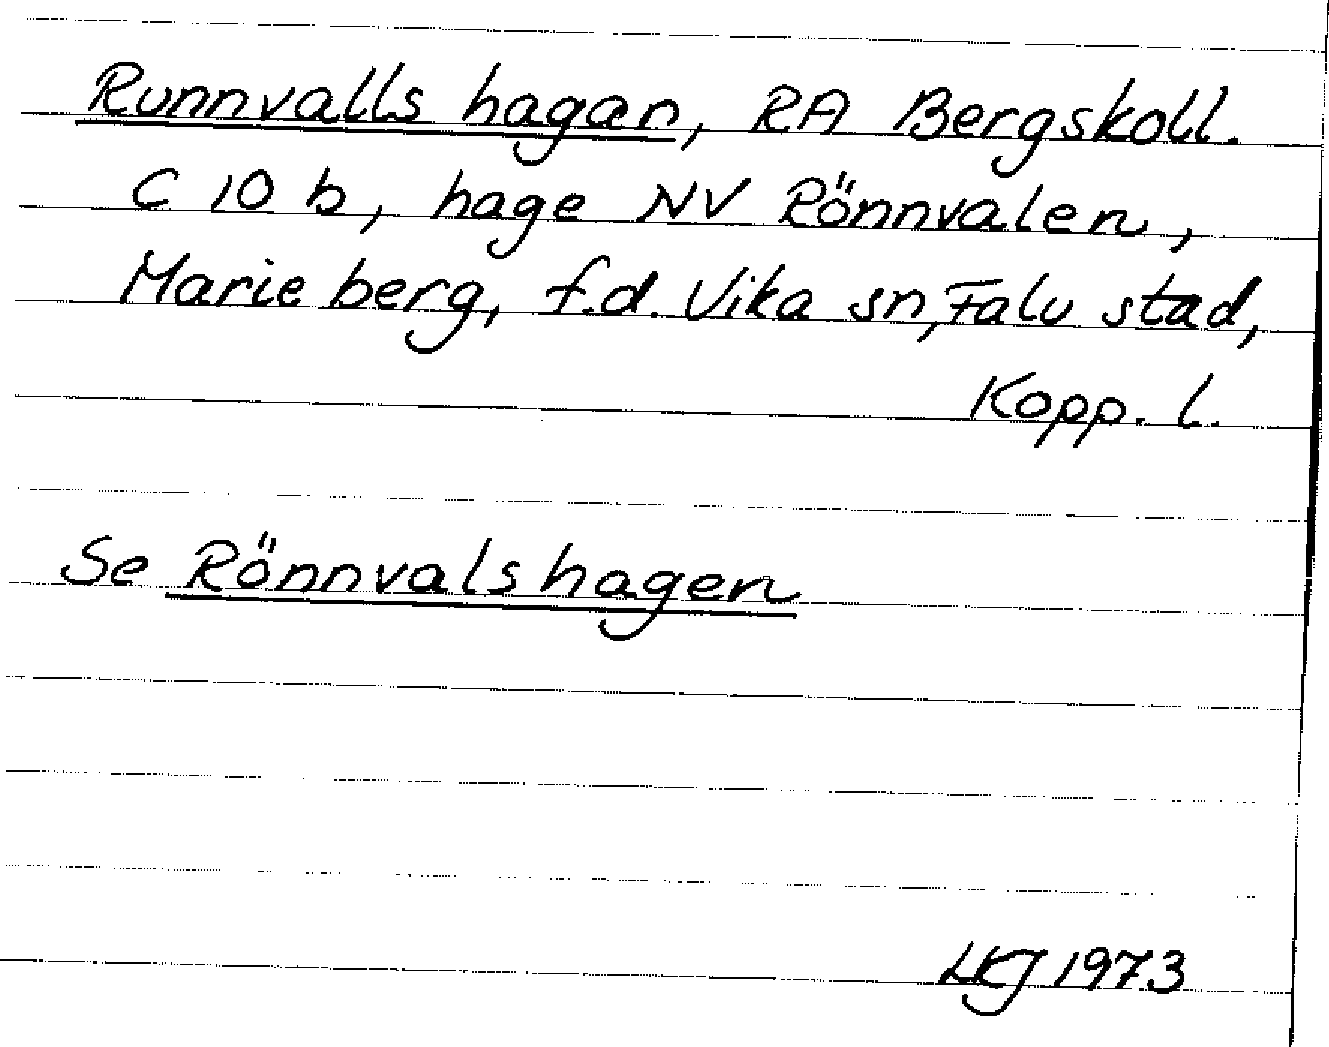 Runnvalls hagan, RA Bergskoll.
C 10 b, hage NV Rönnvalen,
Marieberg, f.d. Vika sn, Falu stad,
Kopp. l.
Se Rönnvalshagen
LKJ 1973